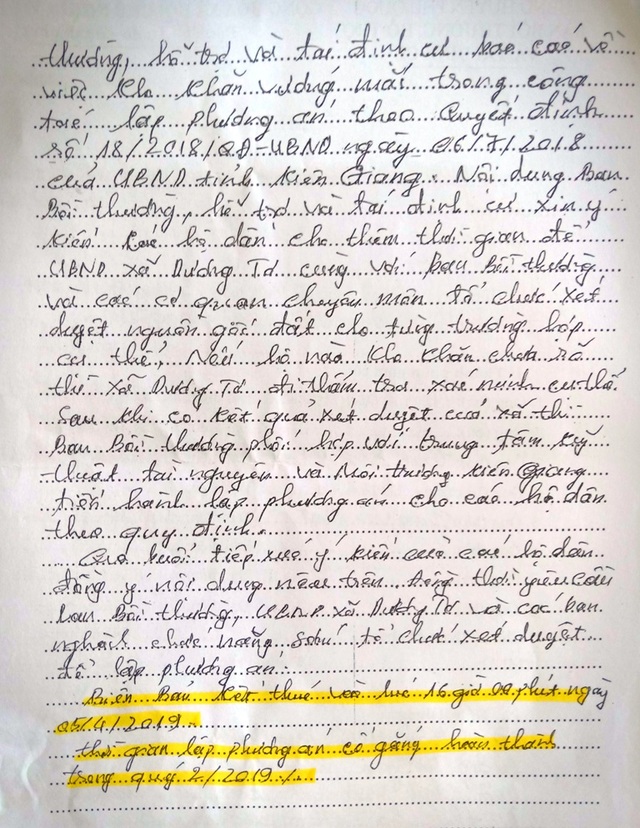 thường, hỗ trợ và tái định cư báo cáo về
việc khó khăn vướng mắc trong công
tác lập phương án theo Quyết định
số 18/2018/QĐ-UBND ngày 06/7/2018
của UBND tỉnh Kiên Giang. Nội dung Ban
Bồi thường, hỗ trợ và tái định cư xin ý
kiến các hộ dân cho thêm thời gian để
UBND xã Dương Tơ cùng với Ban Bồi thường
và các cơ quan chuyên môn tổ chức xét
duyệt nguồn gốc đất cho từng trường hợp
cụ thể, Nếu hộ nào khó khăn chưa rõ
thì xã Dương Tơ đi thẩm tra xác minh cụ thể
Sau khi có kết quả xét duyệt của xã thì
Ban Bồi thường phối hợp với trung tâm kỹ
thuật tài nguyên và Môi trường Kiên Giang
tiến hành lập phương án cho các hộ dân
theo quy định.
Qua buổi tiếp xúc ý kiến của các hộ dân
đồng ý nội dung nêu trên đồng thời yêu cầu
ban Bồi thường, UBND xã Dương Tơ và các ban
nghành chức năng sớm tổ chức xét duyệt
để lập phương án.
Biên Bản kết thúc vào lúc 16 giờ 00 phút ngày
05/4/2019
thời gian lập phương án cố gắng hoàn thành
trong quý 2/2019./.